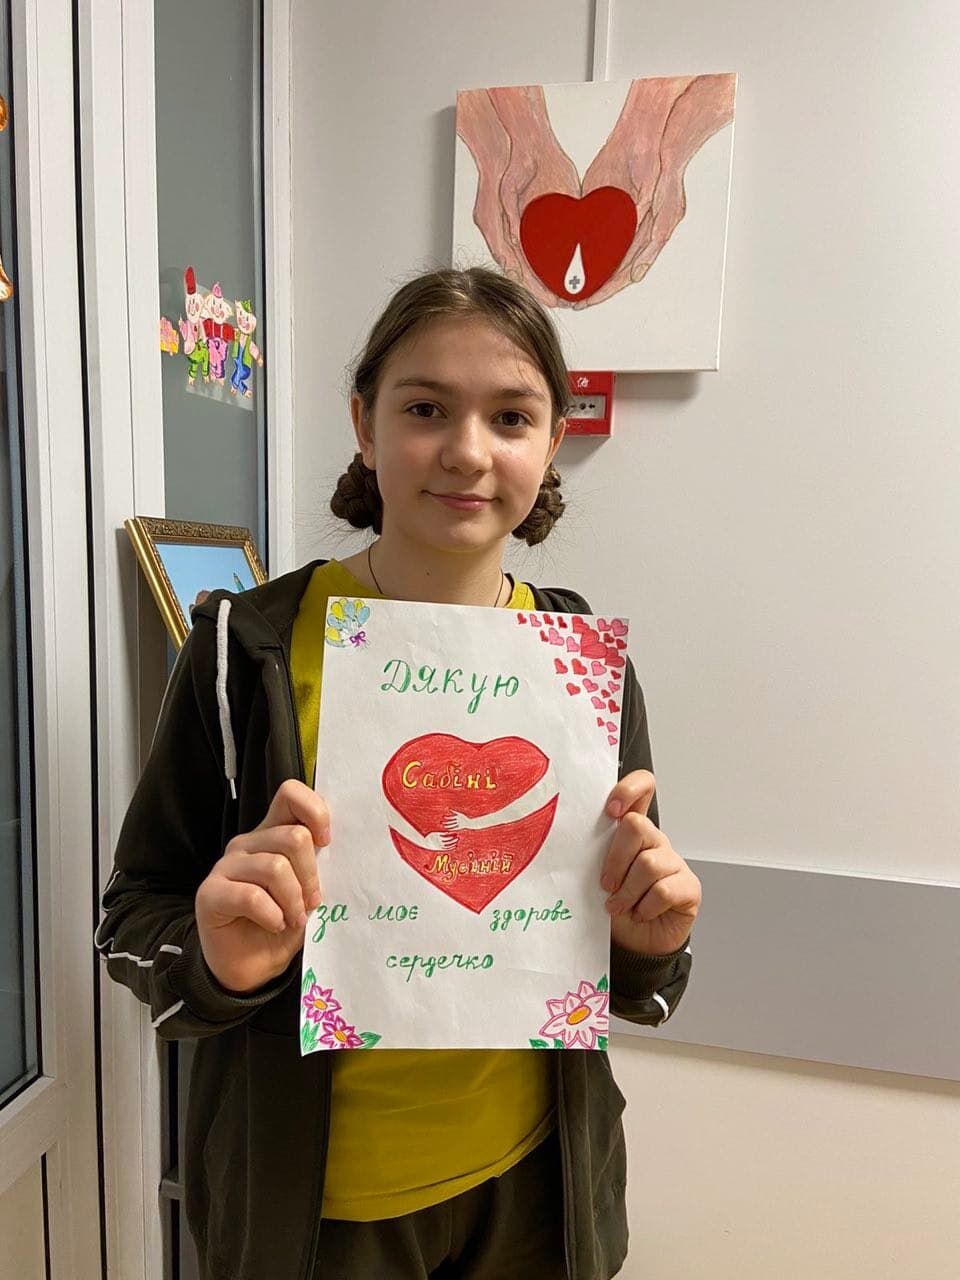 Дякую
Сабіні
Мусіній
за моє здорове
сердечко